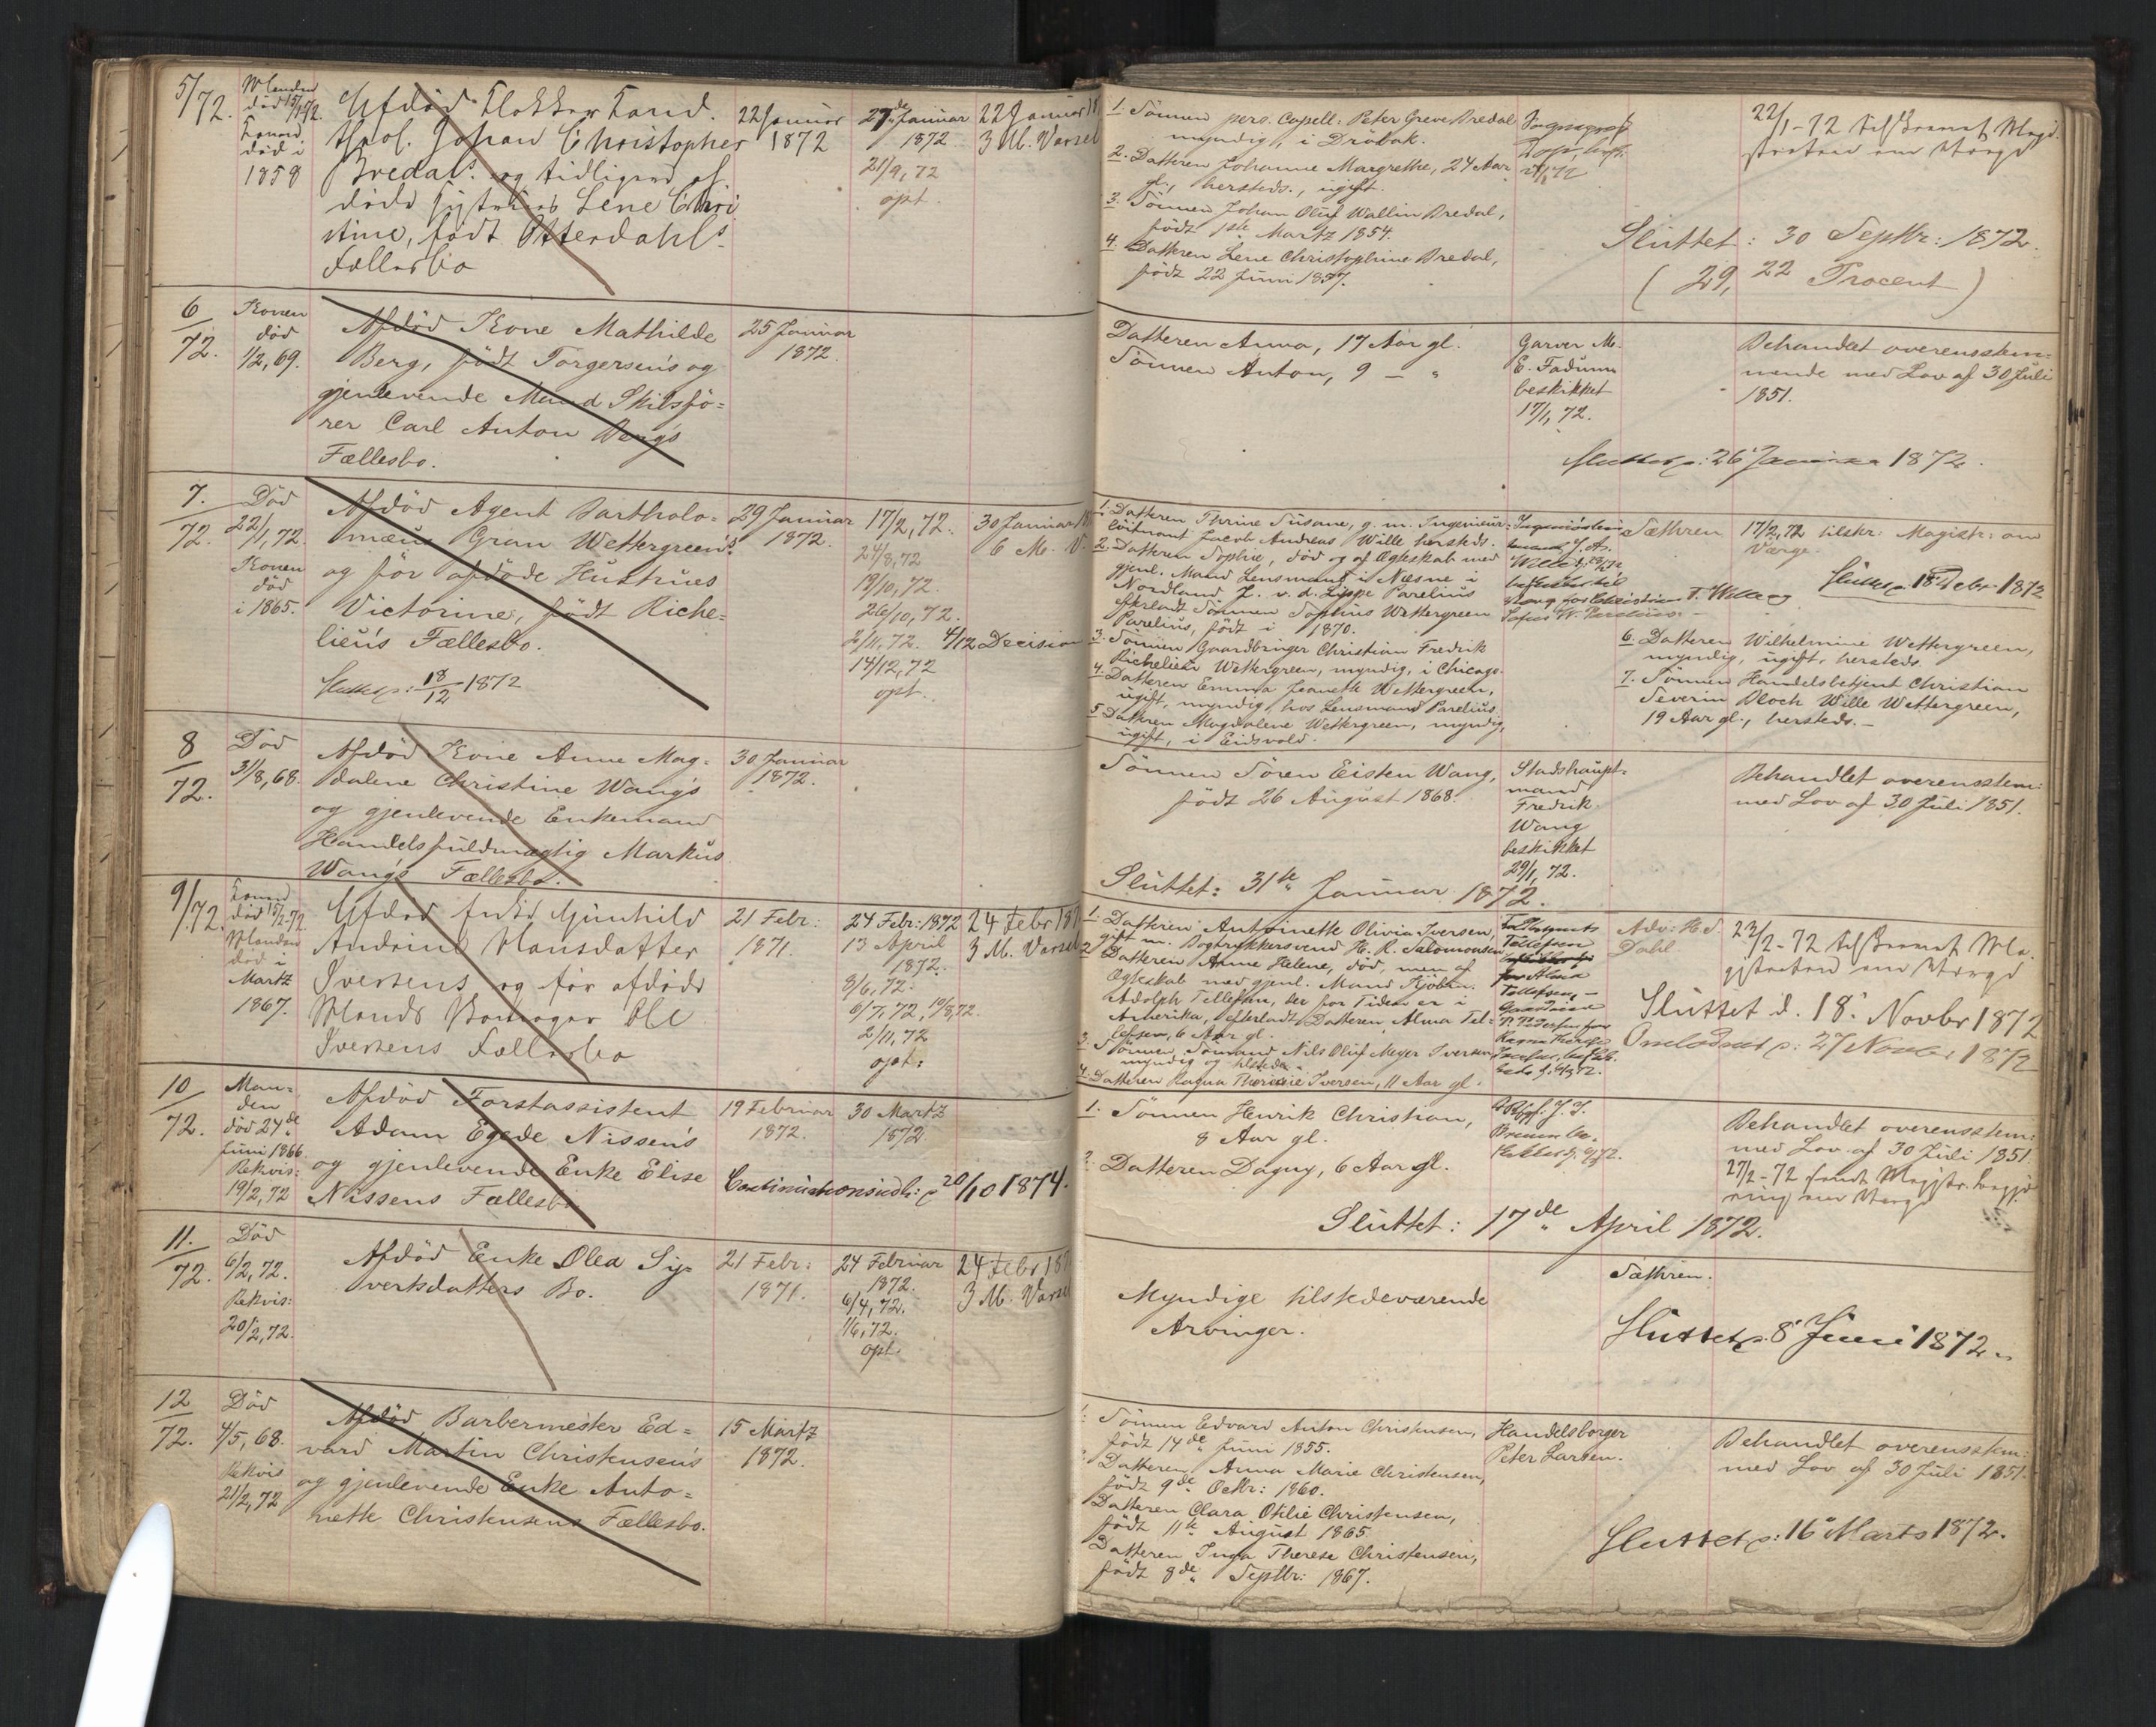 5/72.
Manden
død 15/1 72.
Konen
død i
1858
Afdød Klokker Kand.
theol. Johan Christopher
Bredals og tidligere af-
døde Hustrues Lene Chri
stine, født Otterdahls
Fællesbo
22 Januar
1872
27de Januar
1872
21/9, 72
opt.
22 Januar 18
3 M. Varsel
1. Sönnen pers. Capell: Peter Greve Bredal
myndig, i Dröbak.
2. Datteren Johanne Margrethe, 24 Aar
gl., hersteds., ugift.
3. Sönnen Johan Oluf Wallin Bredal,
født 1ste Martz 1854.
4. Datteren Lene Christophine Bredal,
født 22 Juni 1857.
22/1-72 tilskrevet Magi
straten om Værge
Sluttet: 30 Septbr: 1872.
(29, 22 Procent)
6
72.
Konen
död
1/2, 69.
Afdöd Kone Mathilde
Berg, födt Torgersens og
gjenlevende Mand Skibsfö=
rer Carl Anton Bergs
Fællesbo.
25 Januar
1872.
Datteren Anna, 17 Aar gl.
Sönnen Anton, 9 — "
Garver M.
E. Fadum
beskikket
17/1, 72.
Behandlet overensstem=
mende med Lov af 30 Juli
1851.
Sluttet p: 26 Januar 1872.
7.
72.
Död
22/1, 72.
Konen
död
i 1865.
Afdöd Agent Bartholo=
mæus Gran Wettergreen's
og för afdöde Hustrues
Victorine, födt Riche=
lieu's Fællesbo.
Sluttet p: 18/12 1872
29 Januar
1872.
17/2, 72.
24/8, 72
19/10, 72.
26/10, 72.
2/11, 72. 4/12 Decision
14/12, 72
opt.
30 Januar 18
6 M. V.
1. Datteren Thrine Susane, g. m. Ingenieur-
löitnant Jacob Andreas Wille hersteds.
2. Datteren Sophie, död og af Ægteskab med
gjenl. Mand Lensmand i Næsne i
Nordland Z. v. d. Lippe Parelius
efterladt Sönnen Sophus Wettergreen
Parelius, födt i 1870.
3. Sönnen Gaardbruger Christian Fredrik
Richelieu Wettergreen, myndig, i Chicago.
4. Datteren Emma Jeanette Wettergreen,
ugift, myndig, hos Lensmand Parelius.
5 Datteren Magdalene Wettergreen, myndig,
ugift, i Eidsvold.
Sæthren
17/2, 72 tilskr. Magistr: om
Værge.
Sluttet p: 18 Decbr 1872
6. Datteren Wilhelmine Wettergreen,
myndig, ugift, hersteds.
7. Sönnen Handelsbetjent Christian
Severin Bloch Wille Wettergreen,
19 Aar gl., hersteds. —
8
72.
Död
31/8, 68.
Afdöd Kone Anne Mag=
dalene Christine Wang's
og gjenlevende Enkemand
Handelsfuldmægtig Markus
Wang's Fællesbo.
30 Januar
1872.
Sönnen Sören Eisten Wang,
födt 26 August 1868.
Stadshaupt=
mand
Fredrik
Wang
beskikket
29/1, 72.
Behandlet overensstem:
med Lov af 30 Juli 1851.
Sluttet: 31te Januar 1872.
9/72.
Konen
död 15/2-72.
Manden
död i
Martz
1867.
Afdød Enke Gunhild
Andrine Hansdatter
Iversens og før afdøde
Mands Ole
Iversens Fællesbo
21 Febr:
1871.
24 Febr: 1872
13 April
1872.
3/6, 72.
6/7, 72, 10/8, 72.
2/11, 72
opt:
24 Febr 187
3 M. Varsel
1. Datteren Antoinette Olivia Iversen,
gift m. Bogtrykkersvend H. R. Salomonsen
2 Datteren Anne Helene, död, men af
Ægteskab med gjenl. Mand Kjöbm.
Adolph Tellefsen, der for Tiden er i
Amerika, efterladt Datteren Alma Tel=
lefsen, 6 Aar gl.
3. Sönnen Sömand Nils Oluf Meyer Iversen
myndig og tilstede.
4. Datteren Ragna Theresie Iversen, 11 Aar gl.
Adv: H. S.
Dahl.
22/2-72 tilskrevet Ma
gistraten om Værge
Sluttet d. 18. Novbr 1872
Omlödnet p: 27 Novbr 1872
10
72.
Man=
den
död 24de
Juni 1866.
Rekvis:
19/2, 72
Afdöd Forstassistent
Adam Egede Nissen's
og gjenlevende Enke Elise
Nissens Fællesbo
19 Februar
1872.
30 Martz
1872
20/10 1874.
1. Sönnen Henrik Christian,
8 Aar gl.
2. Datteren Dagny, 6 Aar gl.
Behandlet overensstem:
med Lov af 30 Juli 1851.
27/2-72 sendt Magistr.
ning om Værge
Sluttet: 17de April 1872.
11.
72.
Död
6/2, 72.
Rekvis:
20/2, 72.
Afdöd Enke Olea Sy-
vertsdatters Bo.
21 Febr:
1871.
24 Februar
1872.
6/4, 72.
1/6, 72.
opt.
24 Febr 187
3 M. Varsel
Myndige tilstedeværende
Arvinger.
Sæthren.
Sluttet p. 8 Juni 1872.
12
72.
Död
4/5, 68.
Rekvis
21/2, 72
Afdöd Barbermester Ed=
vard Martin Christensen's
og gjenlevende Enke Anto=
nette Christensens Fællesbo.
15 Martz
1872.
1: Sönnen Edvard Anton Christensen,
födt 14de Juni 1855.
Datteren Anna Marie Christensen,
födt 9de Octbr: 1860.
Datteren Clara Otilie Christensen,
födt 11te August 1865.
Datteren Inga Therese Christensen,
födt 8de Septbr: 1867.
Handelsborger
Peter Larsen.
Behandlet overensstem:
med Lov af 30 Juli 1851.
Sluttet p: 16 Marts 1872.